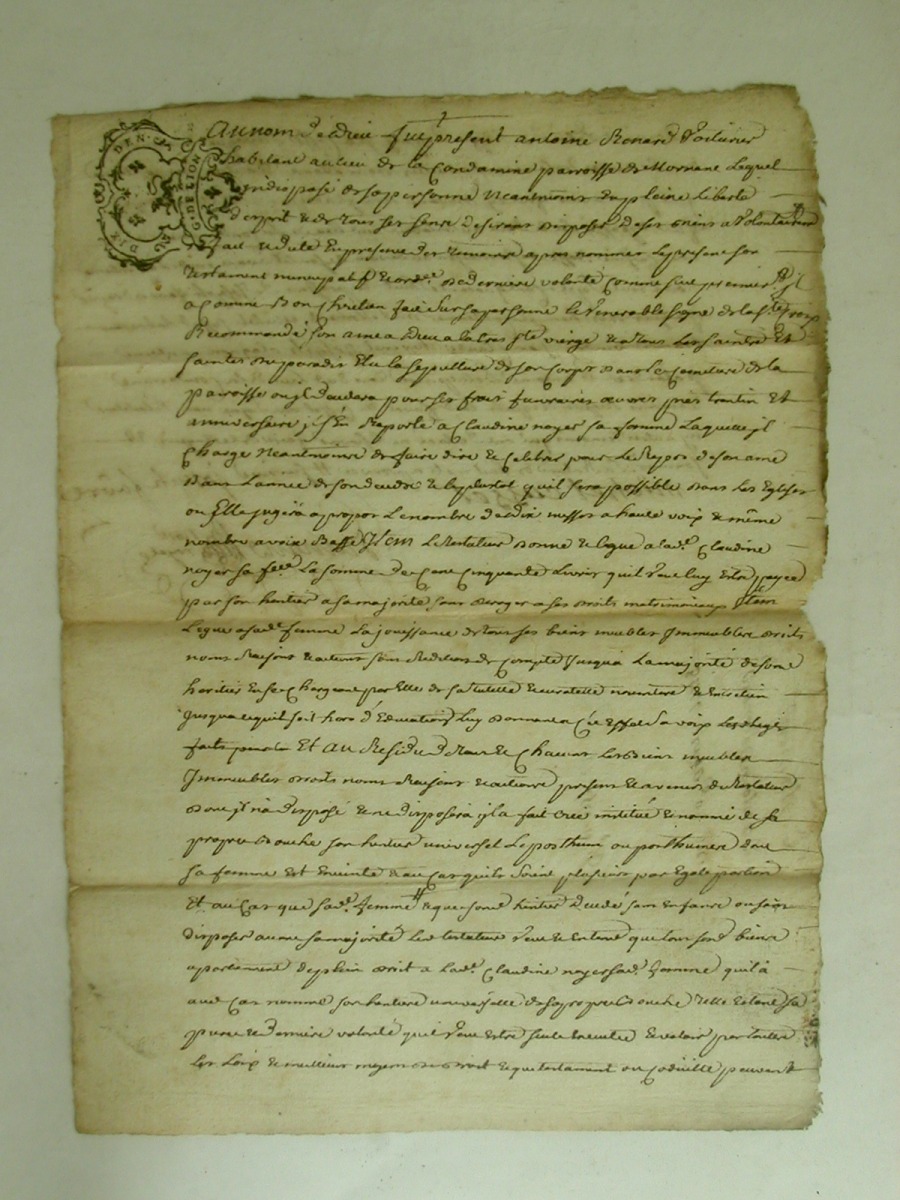 DIX DEN. G. DE LION
Au nom de dieu fut present antoine Renard Voiturier
habitant au lieu de la Condamine parroisse de Mornant Lequel
indisposé de sa personne Neantmoins en pleine Liberte
d'esprit & de tous ses sens Desirant disposer De ses biens a Volontairement
fait & dicté En presence des temoins apres nommes Le present son
testament nuncupatif & ord.re De derniere volonté Comme suit premier.t jl
a Comme Bon Chretien fait Sur sa personne le Venerable signe de la S.te Croix
Recommandé son ame a Dieu a la tres S.te vierge & a tous Les saints Et
saintes du paradis Elu la sepulture de son Corps dans le Cimetiere de la
parroisse ou jl decedera pour ses frais funeraires œuvres pies trentin Et
anniversaire jl s'En Raporte a Claudine noyer sa femme Laquelle jl
Charge Neantmoins de faire dire & Celebrer pour Le Repos de son ame
Dans L'année de son decedz & le plustot qu'il sera possible dans les Eglises
ou Elle jugera a propos Le nombre De dix messes a haute voix & même
nombre a voix Basse Item Le testateur Donne & legue a lad.e Claudine
noyer sa f.e La somme De Cent Cinquante Livres qu'il Veut luy Estre payée
par son heritier a sa majorité sans deroger a ses droits matrimoniaux Item
Legue a sad.e femme La jouissance de tous ses biens meubles Immeubles droits
noms Raisons & actions sans Reddition de Compte Jusqu'a La majorité de son
heritier En se Chargeant par Elle de sa tutelle & curatelle nourriture & Entretien
Jusqu'a ce quil soit hors d'Education Luy Donnant a Cet Effet
Et Au Residu De tous & Chacuns Les Biens meubles
Immeubles droits noms Raisons & actions presents & avenirs du testateur
Dont jl n'a Disposé & ne disposera jl a fait Créé institué & nommé de sa
propre Bouche son heritier universel Le posthume ou posthumes dont
sa femme Est Enceinte & au Cas qu'ils soient plusieurs par Egale portion
Et au Cas que sad.e femme & que son heritier Decedé sans Enfants ou sans
disposer avant sa majorité Led testateur Veut & Entend que tous ses biens
apartiennent de plein droit a Lad.e Claudine noyer sad.e femme qu'il a
aud Cas nommé son heritiere universelle de sa propre Bouche telle Estant sa
pure & derniere volonté qu'il Veut Estre seule Executée & valoir par toutes
Les Loix & meilleurs moyens de droit & que testament ou Codicille peuvent